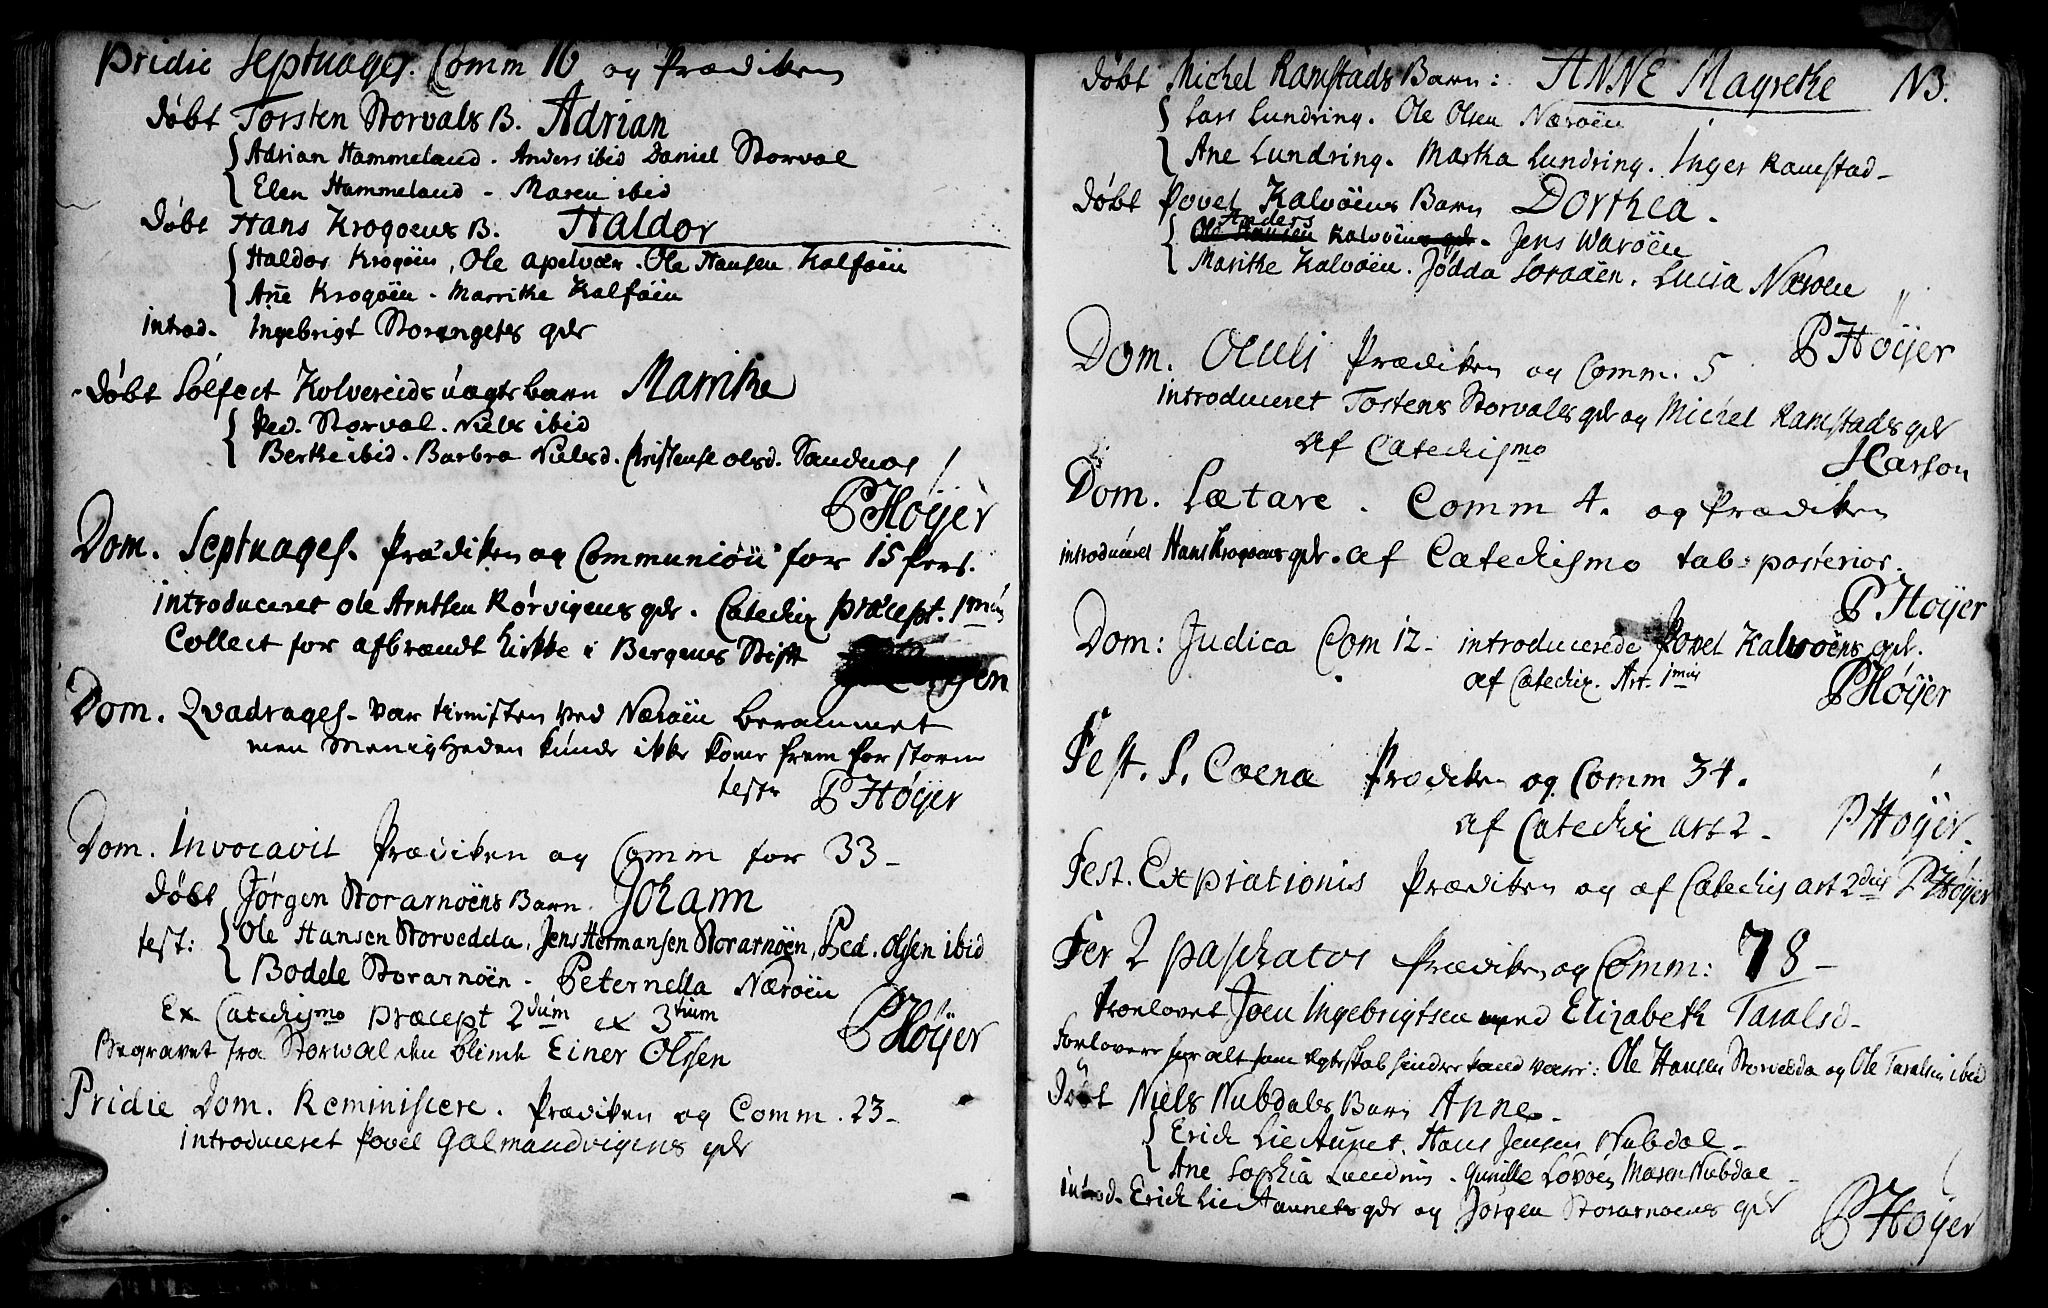 Pridie Septuages. Comm 16 og Prædiken
døbt Torsten Storvals B. Adrian
Adrian Hammeland. Anders ibid Daniel Storval
Elen Hammeland - Maren ibid
døbt Hans Krogøens B. Haldor
Haldor Krogöen, Ole Apelvær. Ole Hansen Kalføen
Ane Krogöen. Marrithe Kalføen
introd. Ingebrigt Storengets qdr
døbt Solfect Kolvereids uægte barn Marrithe
Ped. Storval. Niels ibid
Berthe ibid. Barbro Nielsd. Christense olsd. Sandnæs
P Høyer
Dom. Septuages. Prædiken og Communion for 15 Pers.
introduceret Ole Arntsen Rörvigens qdr. Catechix præcept. 1mus
Collect for afbrændt kirke i Bergens Stift
Dom. Qvadrages. var tienisten ved Næröen berammet
men Menigheden kunde ikke kome frem for storm
test P Høyer
Dom. Invocavit Prædiken og Comm for 33-
døbt Jørgen Storarnøens Barn. Johann
test: Ole Hansen Storvedda, Jens Hermansen Storarnöen, Ped. Olssen ibid
Bodele Storarnöen. Peternella Næröen
Ex Catechismo Præcept 2dum ex 3tium
P Høyer
Begravet fra Storwal den blinde Einer Olssen
Pridie Dom. Reminiscere. Prædiken og Comm. 23-
introduceret Povel Galmandvigens qdr
døbt Michel Ramstads Barn: ANNE Magrethe N3.
Lars Lundring. Ole Olsen Næröen
Ane Lundring. Martha Lundring. Inger Ramstad-
døbt Povel Kalvöens Barn Dorthea.
Anders Kalvöen. Jens Waröen
Marithe Kalvöen. Jødda Soraöen. Lucia Næröen
P Høyer
Dom. Oculi Prædiken og Comm. 5
introduceret Tostens Storvals qdr og Michel Ramstads qdr
Af Catechismo
Dom. Lætare. Comm 4. og Prædiken
introduceret Hans Krogoens qdr. af Catechismo tab. posterior.
P Høyer
Dom: Judica Com 12- introducerede Povel Kalvöens qdr.
af Catechix. Art. 1mus
P Høyer
Fest. S. Coenæ Prædiken og Comm 34.
Af Catechix art 2- P Høyer.
Fest. Expiationis Prædiken og af Catechis art 2dus P Høyer
Fer 2 paschatos Prædiken og Comm: 78-
Troelovet Joen Ingebrigtsen med Elizabeth Taralsd-
Forlovere for alt som Egteskab hindre kand være: Ole Hansen Storvedda og Ole Taralsen ibid
Døbt Niels Nubdals Barn Anne.
Erich Lie Aunet. Hans Jensen Nubdal-
Ane Sophia Lundrin. Gunille Löböen Maren Nubdal-
introd. Erich Lie Aunets qdr og Jørgen Storarnoens qdr
P Høyer